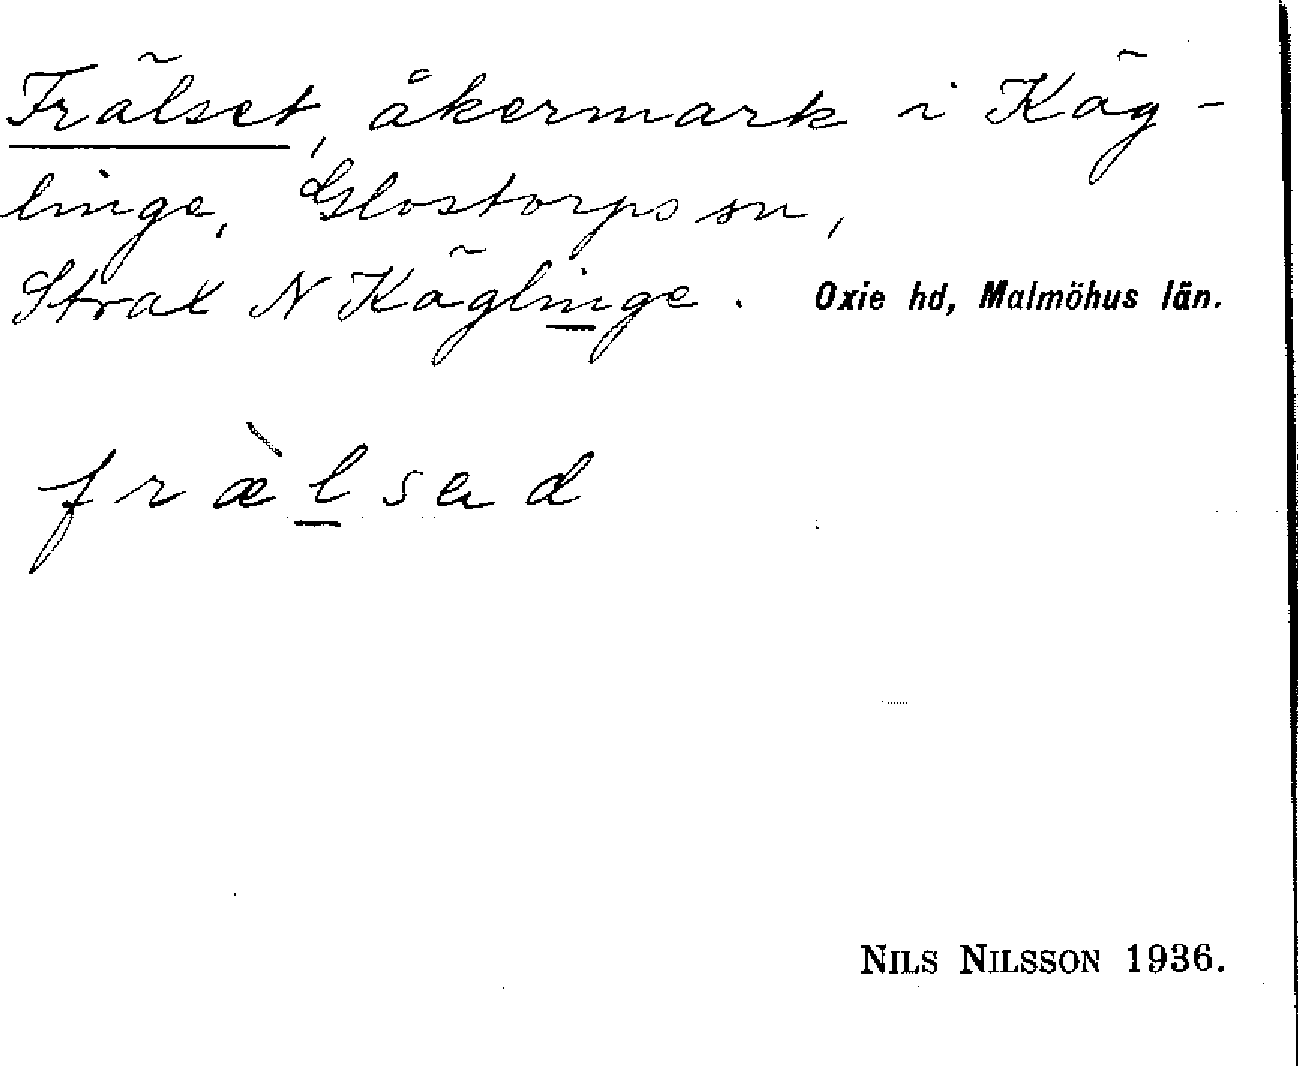 Frälset, åkermark i Käg-
linge, Glostorps sn,
Strax N Käglinge. Oxie hd, Malmöhus län.
fræ̀lsad
NILS NILSSON 1936.